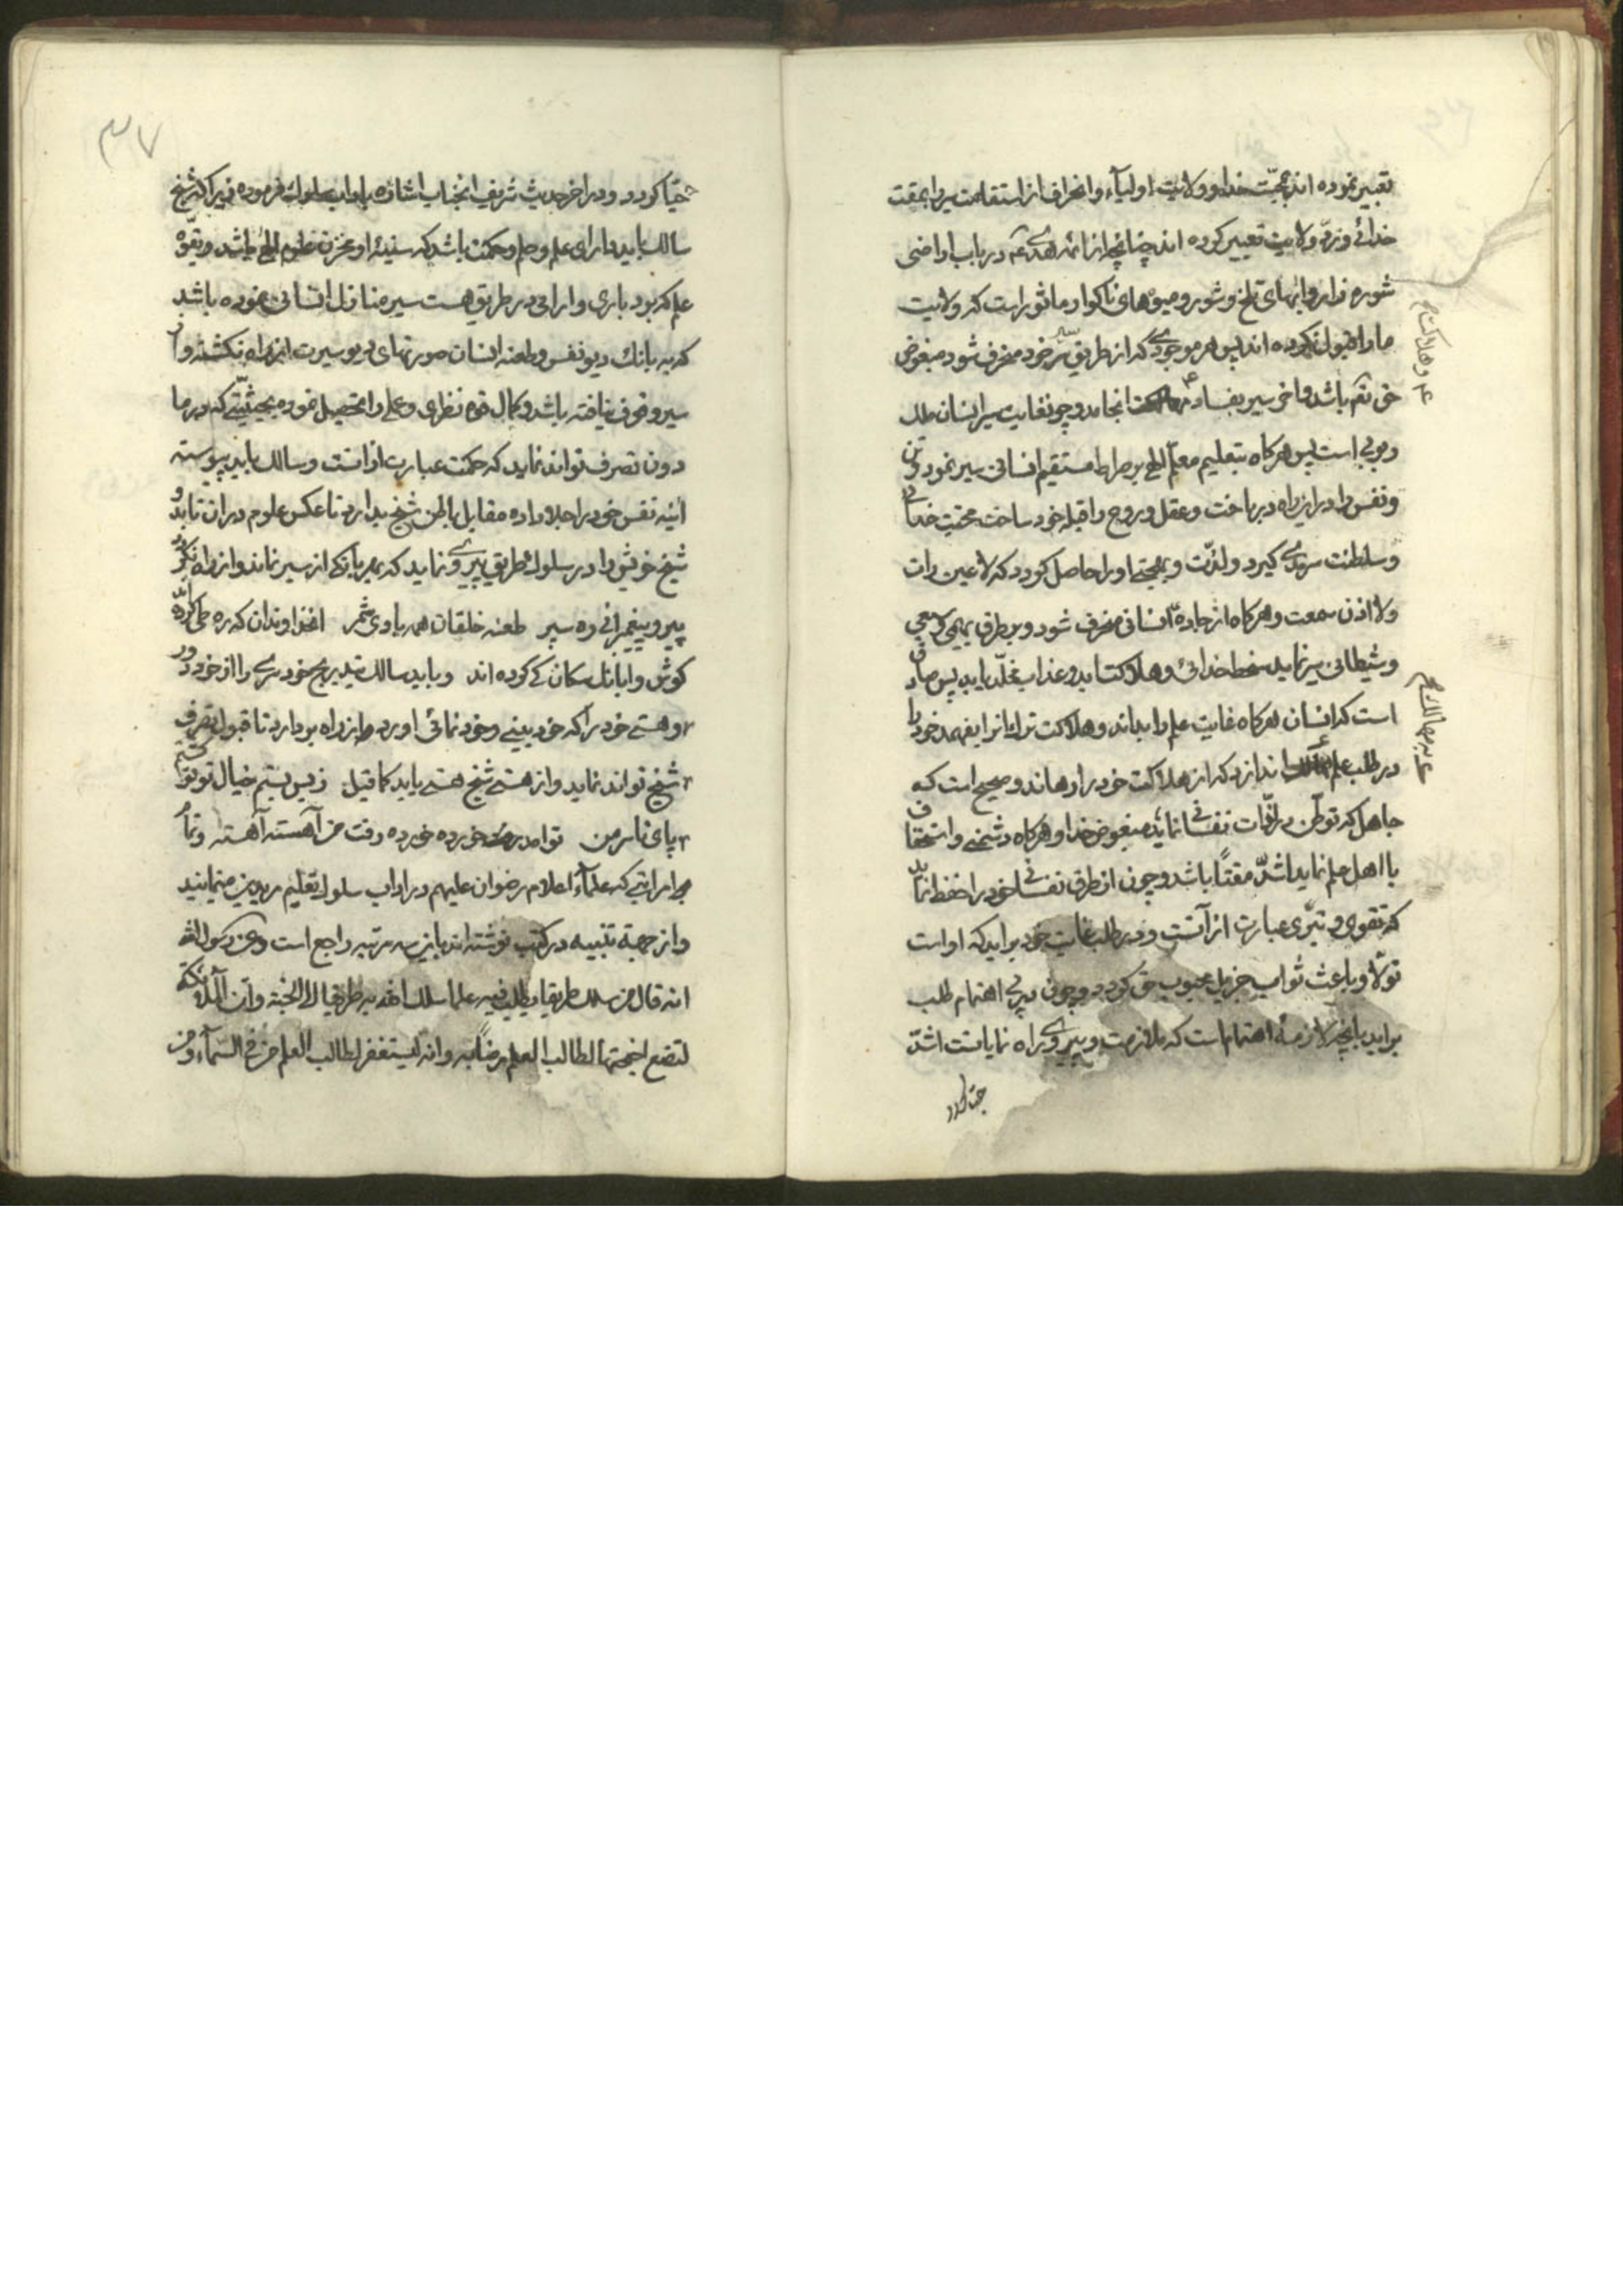 تعبیر نموده اند بمحبّت خدا و ولایت اولیآء و انحراف از استقامت سیر را بمقت
خدائی و ردّ ولایت تعبیر کرده اند چنانچه از ائمه هدی عم در باب اراضی
شوره زار و ابهای تلخ و شور و میوهای ناکوار ماثور است که ولایت
ما را قبول نکرده اند پس هر موجودی که از طریق سیر خود منحرف شود مبغوض
حق تعم باشد و اخر سیر بفساد انجامد و چون غایت سیر انسان ملک
ربوبی است پس هرکاه بتعلیم معلّم الهی بر صراط مستقیم انسانی سیر نمود و تن
و نفس را در این راه درباخت و عقل و روح را قبله خود ساخت محبّت خدائی
و سلطنت سرمدی کیرد و لذّت و بهجتی او را حاصل کردد که لا عین رات
و لا اذن سمعت و هرکاه از جادهٔ انسانی منحرف شود و بر طرق بهیمی و سبعی
و شیطانی سیر نماید سخط خدائی و هلاکت ابد و عذاب مخلّد یابد پس صادق
است که انسان هرکاه غایت علم را بداند و هلاکت ترک انرا بفهمد خود را
در طلب علم اندازد که از هلاکت خود را رهاند و صحیح است که
جاهل که توطّن در لذّات نفسانی نماید مبغوض خدا و هرکاه دشمنی و استخفاف
با اهل علم نماید اشدّ مقتًا باشد و چون از طرق نفسانی خود را حفظ نماید
که تقوی و تبرّی عبارت از آنست و در طلب غایت خود براید که او است
تولّا و باعث ثواب جزیل محبوب حق کردد و چون در پی اهتمام طلب
براید بانچه لازمهٔ اهتمام است که ملازمت و پیروی راه نمایانست اشدّ
عم و هلاکت
حبّا کردد
حبّا کردد و در اخر حدیث شریف انجناب اشاره باداب سلوک فرموده زیرا که شیخ
سالک باید دارای علم و حلم و حکمت باشد که سینهٔ او مخزن علوم الهی باشد و بقوّه
علم که بردباری و ارامی در طریق هست سیر منازل انسانی نموده باشد
که به بانک دیو نفس و طعنه انسان صورتهای دیو سیرت از راه نکشته و از
سیر وقوف نیافته باشد و کمال قوه نظری و عملی را تحصیل نموده بحیثیّتی که در ما
دون تصرف تواند نماید که حکمت عبارت از انست و سالک باید پیوسته
ائینه نفس خود را جلا داده مقابل باطن شیخ بدارد تا عکس علوم در ان تابد و
شیخ خویش را در سلوک طریق پیروی نماید که بهر بانکی از سیر نماند و از راه نکردد
پیرو پیغمبرانی ره سپر طعنه خلقان همه بادی شمر انخداوندان که ره طی کرده اند
کوش وا بانک سکان کی کرده اند و باید سالک بتدریج خودسری را از خود دور
و هستی خود را که خودبینی و خودنمائی اورد از راه بردارد تا قبول تصرف
شیخ تواند نماید و از هستی شیخ هستی یابد کما قیل ز بس بستم خیال تو تو کشتم
پای تا سر من تو امد خورده خورده رفت من آهسته آهسته و تمام
مراتبی که علمآء اعلام رضوان علیهم در اداب سلوک تعلیم مریدین مینمایند
و از جهة تنبیه در کتب نوشته اند باین سه مرتبه راجع است و عن رسول الله
انه قال من سلک طریقا یطلب فیه علما سلک الله به طریقا الی الجنّة و ان الملائکة
لتضع اجنحتها لطالب العلم رضًا به و انه لیستغفر لطالب العلم من فی السّمآء و من
۳۷